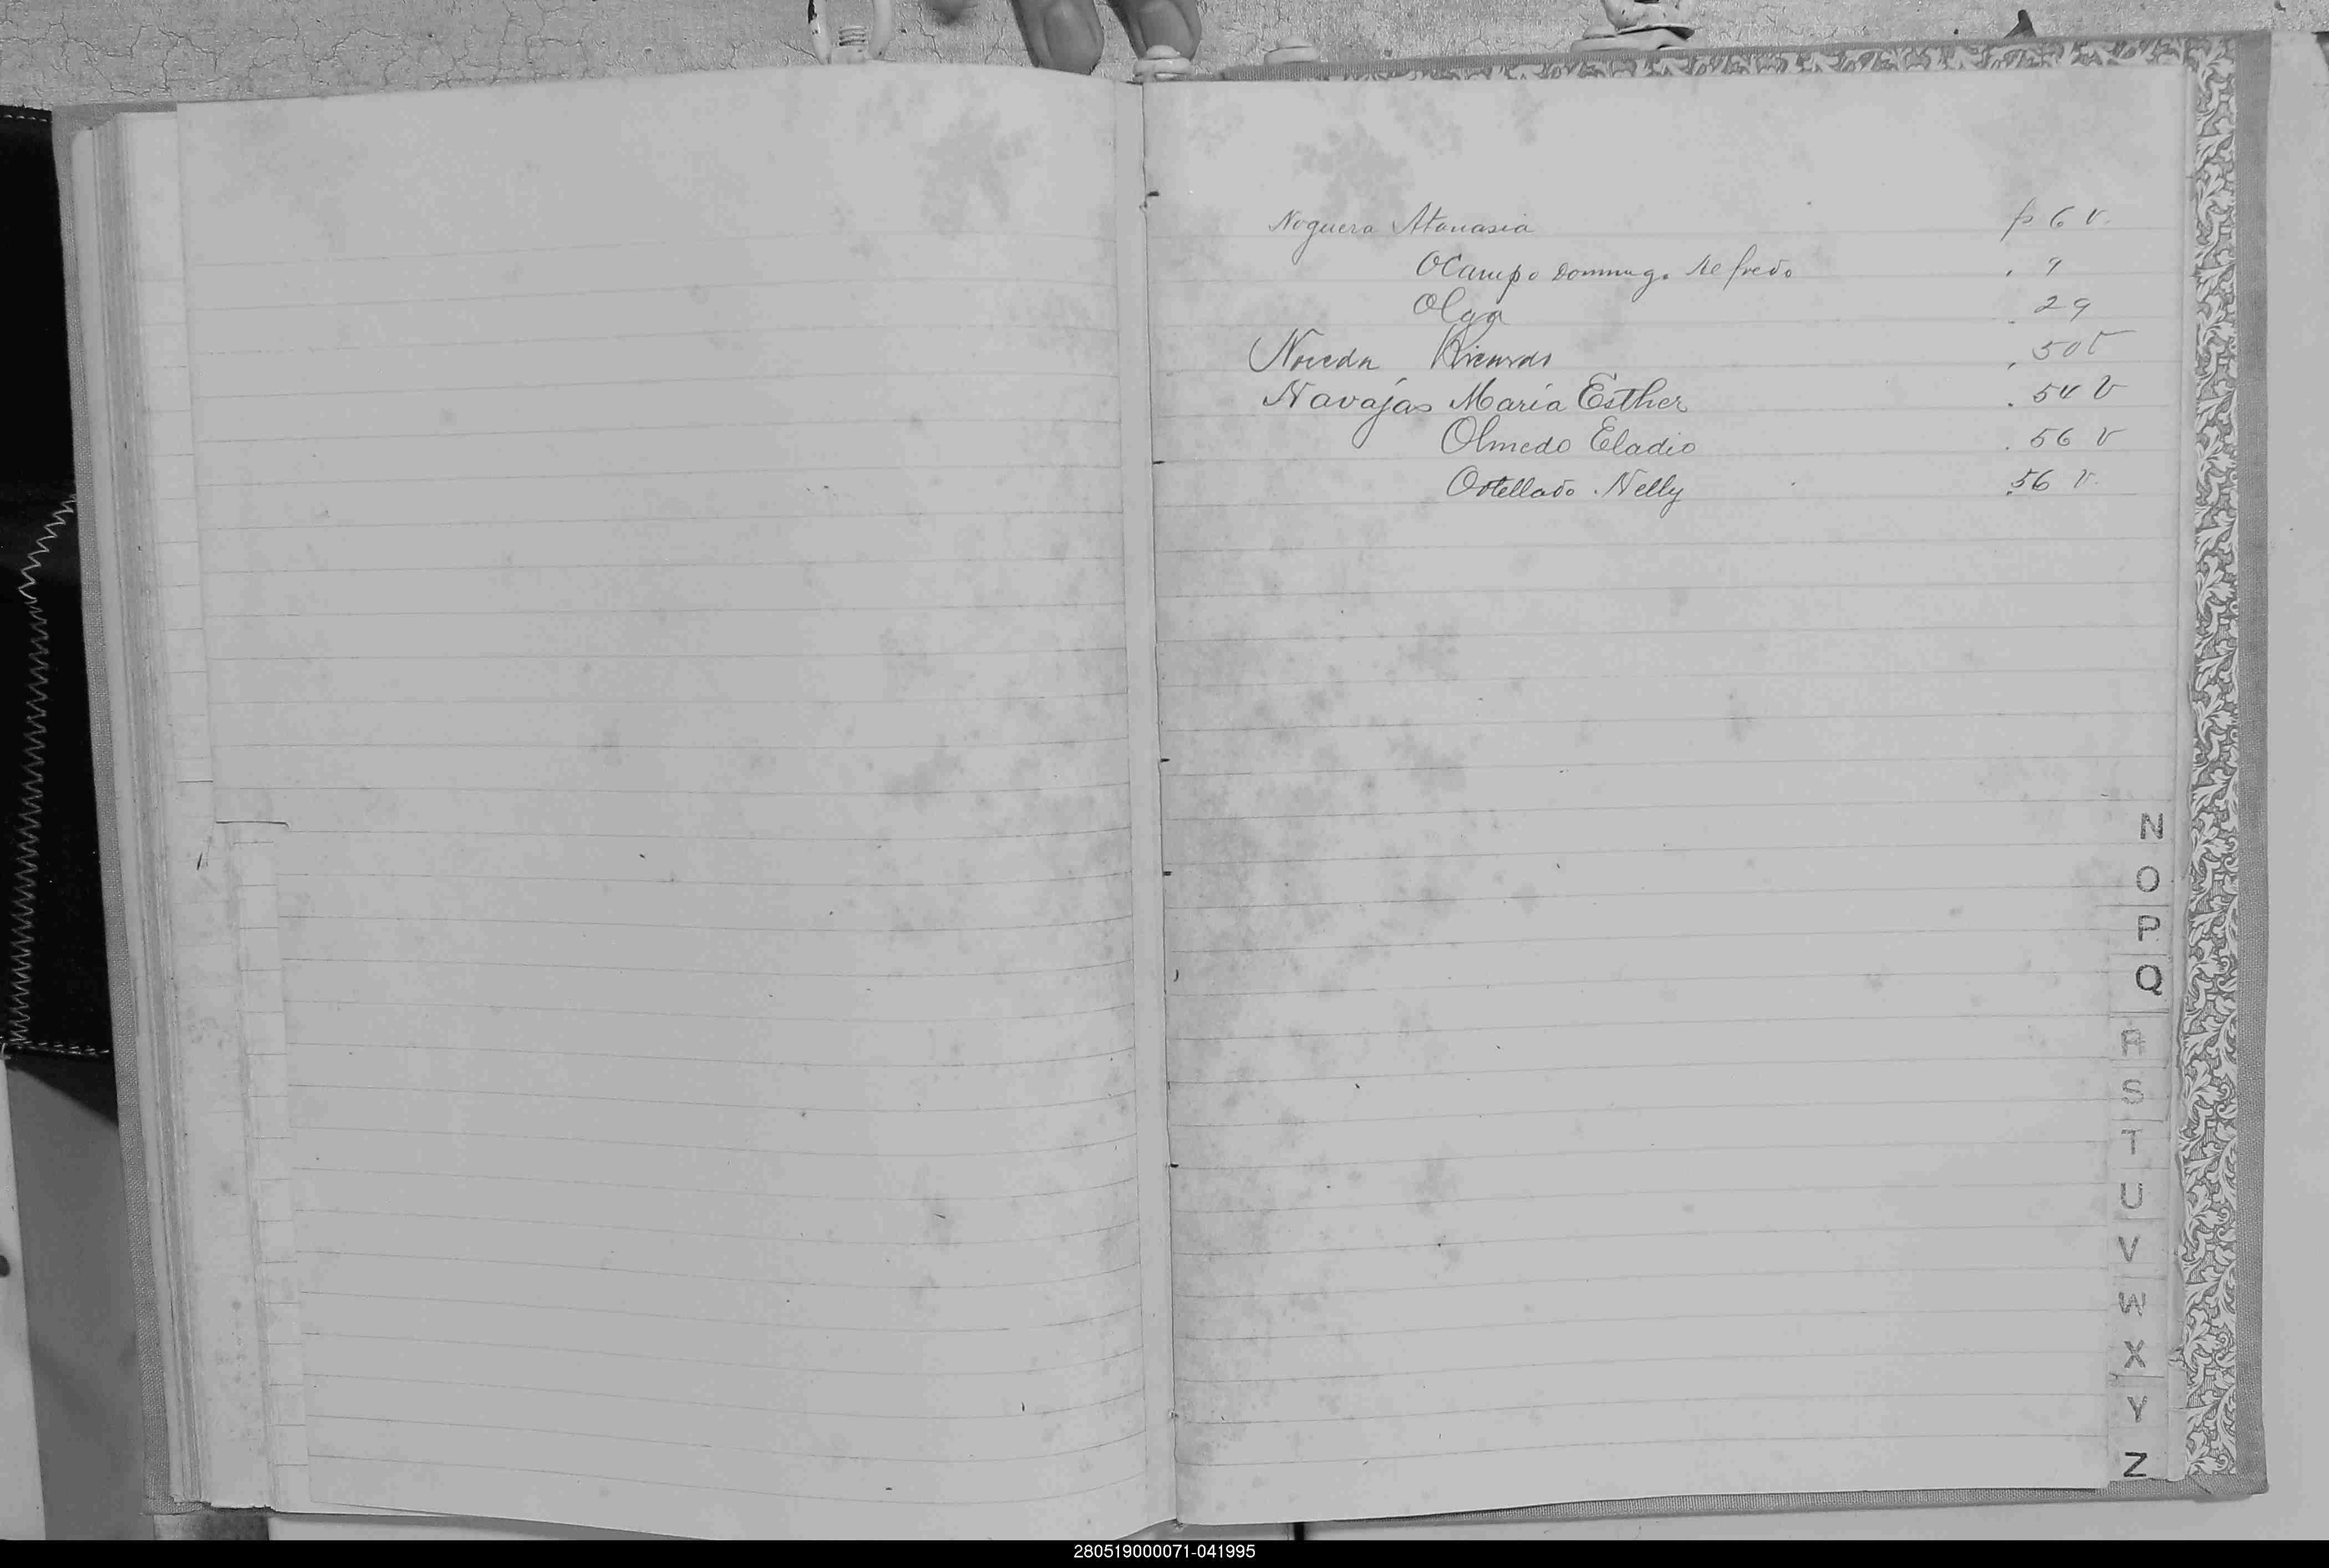 Noguera Atanasia f 6 v.
Ocampo Domingo Alfredo . 9
Olga . 29
Noveda Ricardo . 50 v
Navajas María Esther . 54 v
Olmedo Eladio . 56 v
Ostellado Nelly . 56 v.
N
O
P
Q
R
S
T
U
V
W
X
Y
Z
280519000071-041995